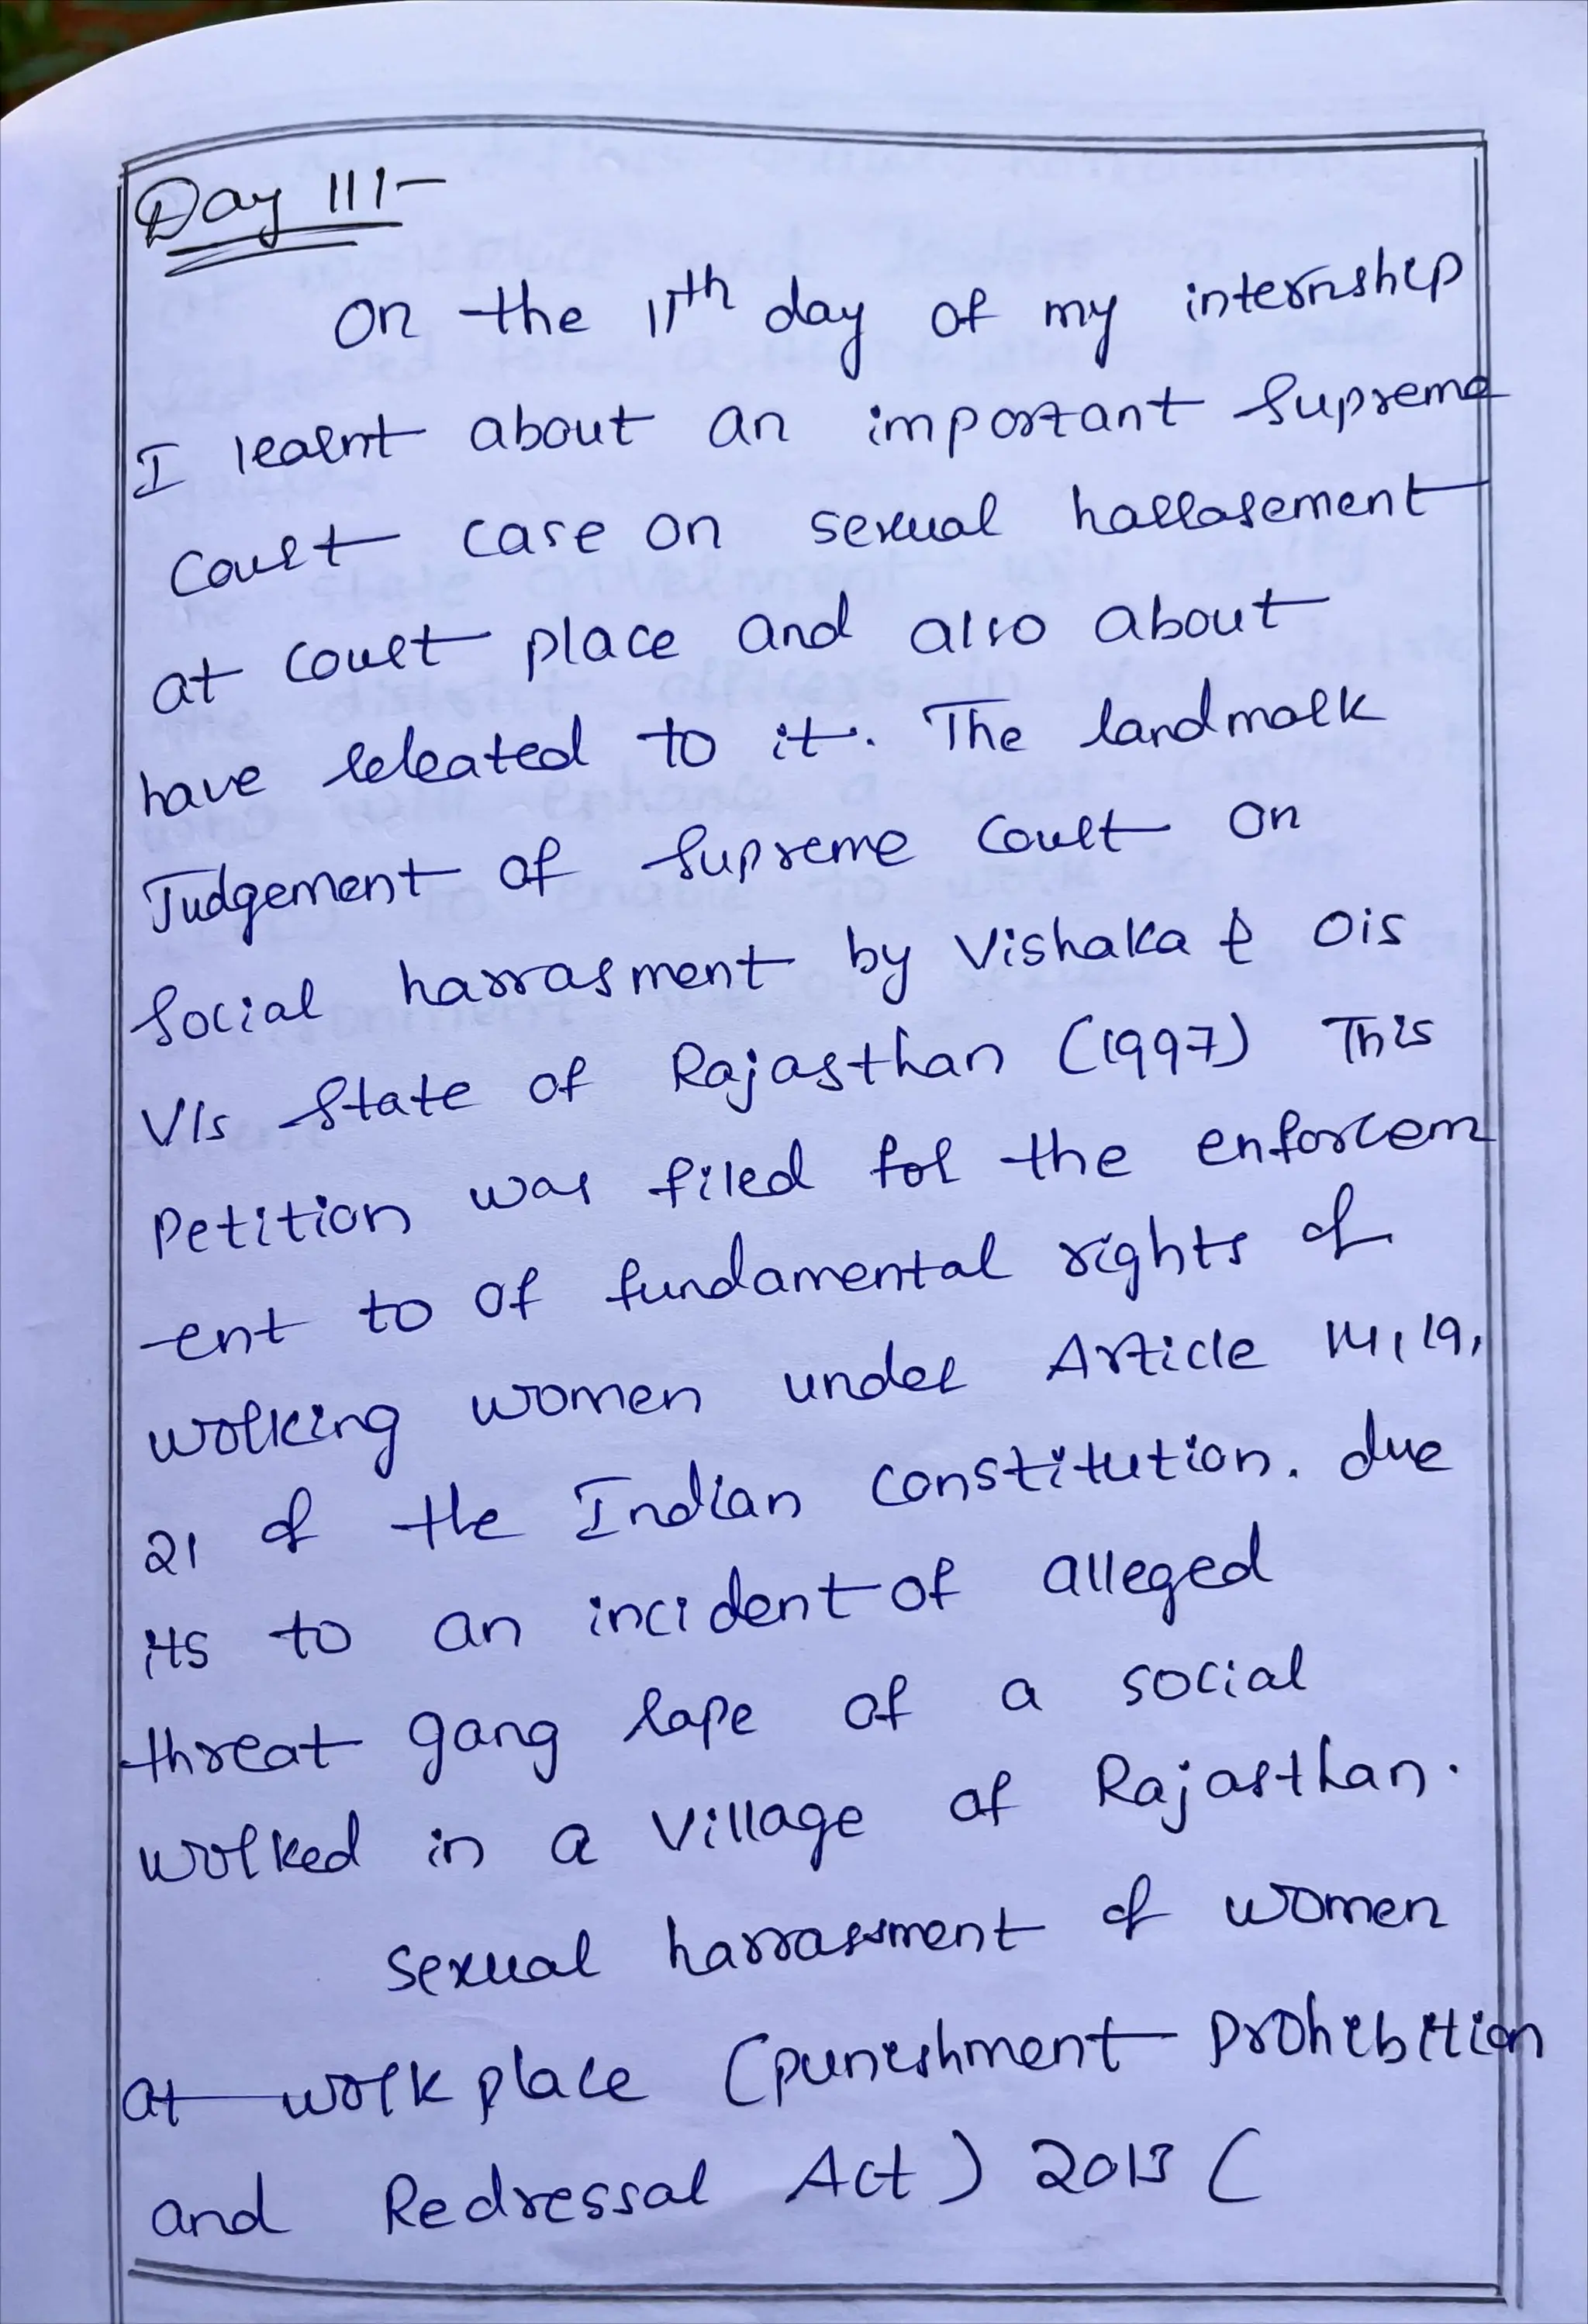 Day 111-
On the 11th day of my internship
I learnt about an important Supreme
Court case on sexual harrasement
at court place and also about
have releated to it. The landmark
Judgement of Supreme Court on
Social harrasment by Vishaka & ois
V/s State of Rajasthan (1997) This
Petition was filed for the enforcem
-ent to of fundamental rights of
working women under Article 14, 19,
21 of the Indian Constitution. due
its to an incident of alleged
threat gang rape of a social
worked in a village of Rajasthan.
Sexual harrassment of women
at workplace (punishment prohibition
and Redressal Act) 2013 (